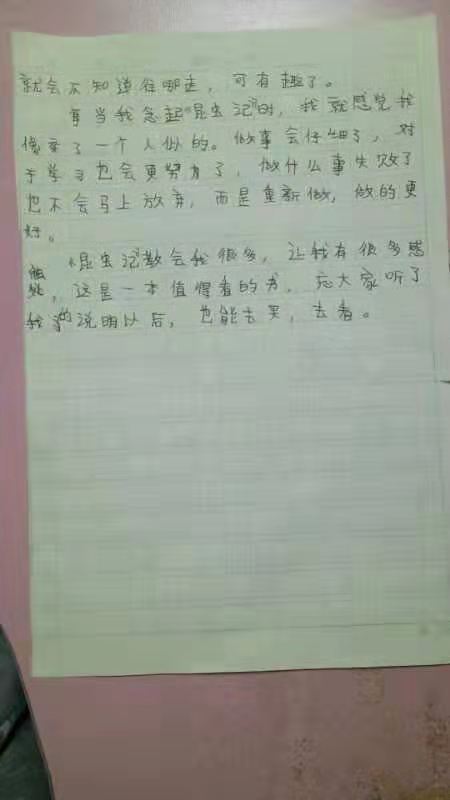 就会不知道往哪走，可有趣了。
每当我念起“昆虫记”时，我就感觉我
像变了一个人似的。做事会仔细了，对
于学习也会更努力了，做什么事失败了
也不会马上放弃，而是重新做，做的更
好。
“昆虫记”教会我很多，让我有很多感
触，这是一本值得看的书，大家听了
我的说明以后，也能去买，去看。